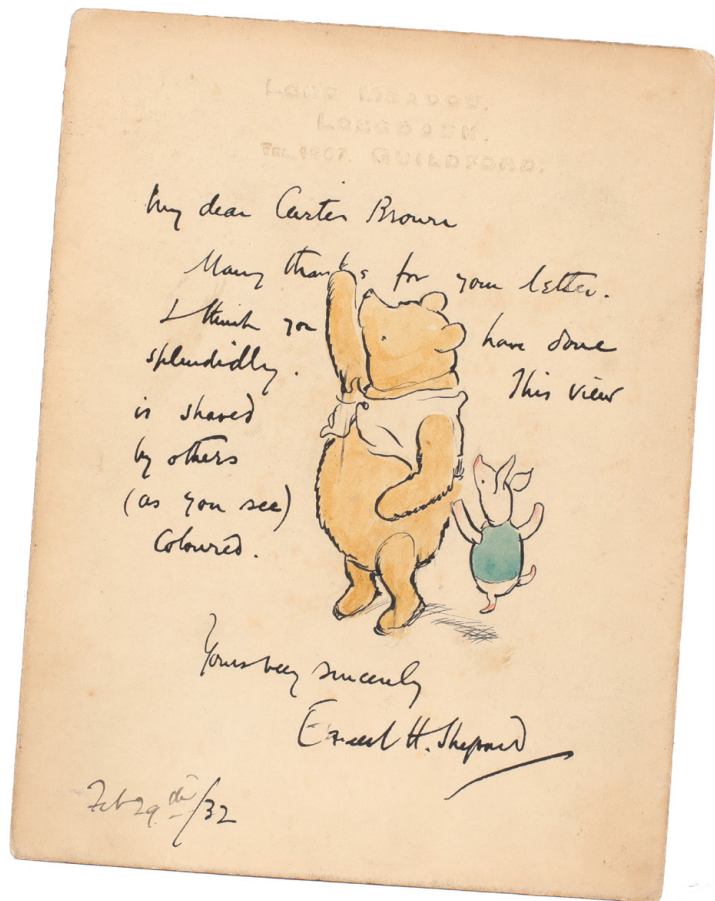 LONG MEADOW,
LONGDOWN,
TEL. 1207. GUILDFORD.
My dear Carter Brown
Many thanks for your letter.
I think you have done
splendidly. This view
is shared
by others
(as you see)
Coloured.
Yours very sincerely
Ernest H. Shepard
Feb 29th/32